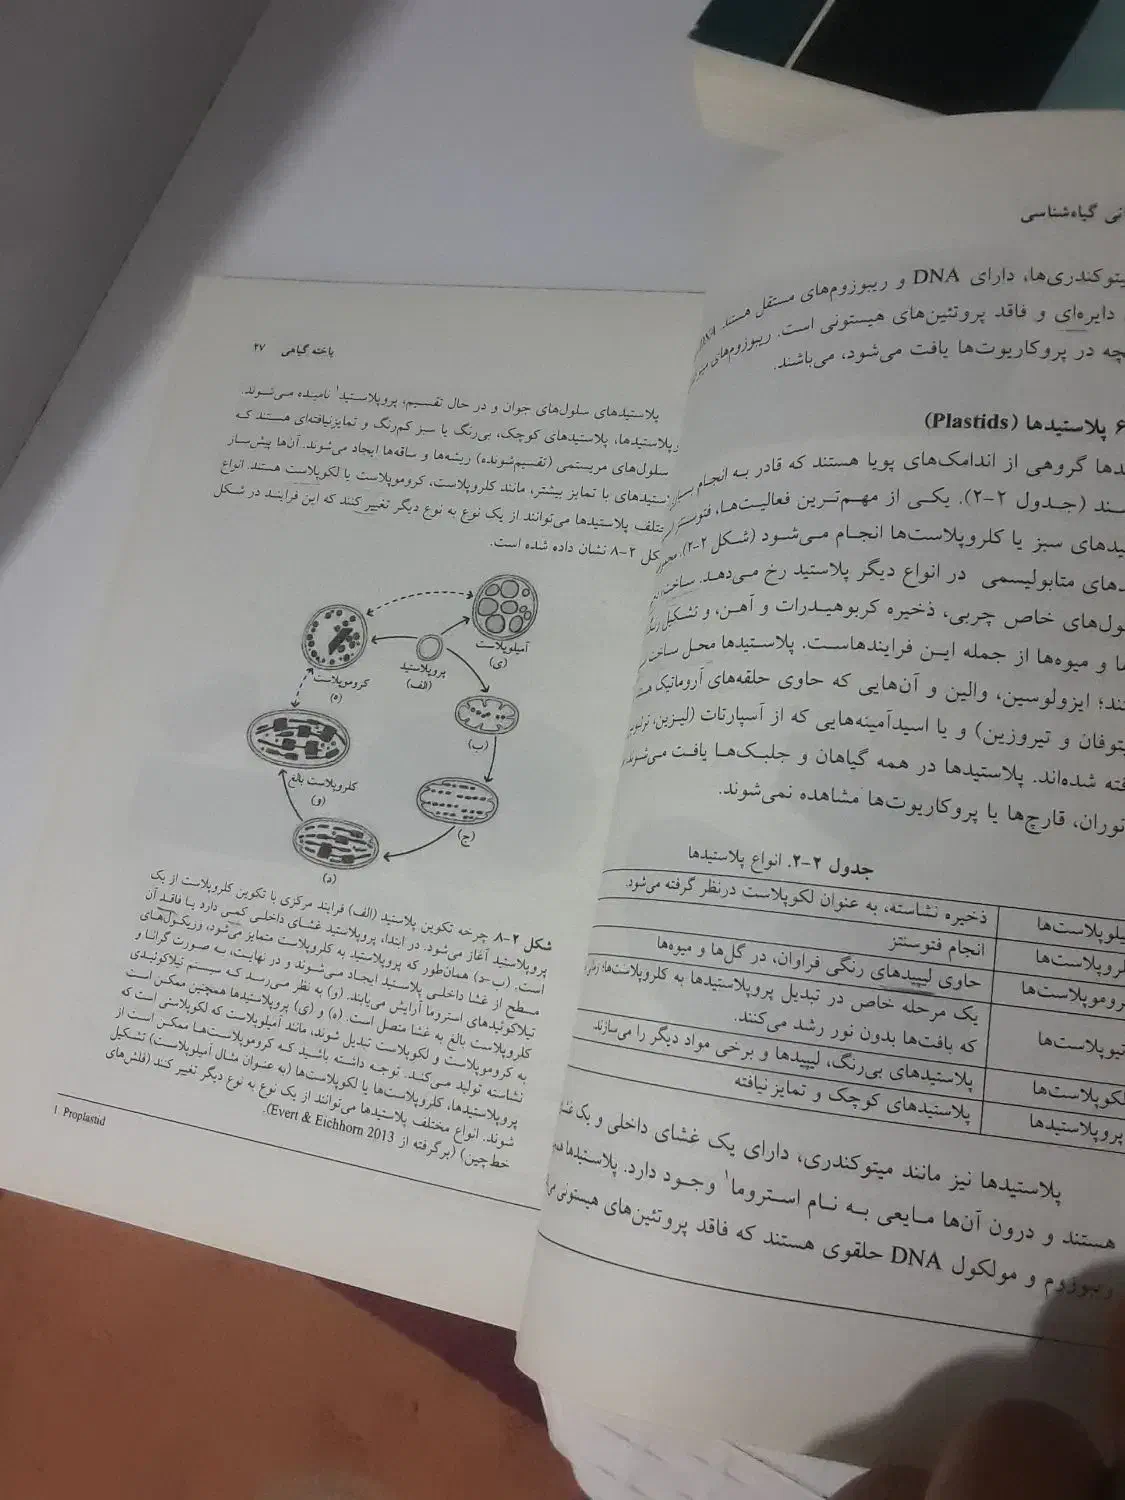 نی گیاه‌شناسی
یتوکندری‌ها، دارای DNA و ریبوزوم‌های مستقل هستند.
دایره‌ای و فاقد پروتئین‌های هیستونی است. ریبوزوم‌های
چه در پروکاریوت‌ها یافت می‌شود، می‌باشند.
۶ پلاستیدها (Plastids)
دها گروهی از اندامک‌های پویا هستند که قادر به انجام
ـند (جدول ۲-۲). یکی از مهم‌ترین فعالیت‌ها،
یدهای سبز یا کلروپلاست‌ها انجام می‌شود (شکل ۲-۲).
دهای متابولیسمی در انواع دیگر پلاستید رخ می‌دهد. ساخت
ول‌های خاص چربی، ذخیره کربوهیدرات و آهن، و تشکیل
ا و میوه‌ها از جمله این فرایندهاست. پلاستیدها محل ساخت
ند؛ ایزولوسین، والین و آن‌هایی که حاوی حلقه‌های آروماتیک
توفان و تیروزین) و یا اسیدآمینه‌هایی که از آسپارتات (لیزین،
فته شده‌اند. پلاستیدها در همه گیاهان و جلبک‌ها یافت می‌شوند
نوران، قارچ‌ها یا پروکاریوت‌ها مشاهده نمی‌شوند.
جدول ۲-۲. انواع پلاستیدها
یلوپلاست‌ها ذخیره نشاسته، به عنوان لکوپلاست درنظر گرفته می‌شود.
لروپلاست‌ها انجام فتوسنتز
روموپلاست‌ها حاوی لیپیدهای رنگی فراوان، در گل‌ها و میوه‌ها
تیوپلاست‌ها یک مرحله خاص در تبدیل پروپلاستیدها به کلروپلاست‌ها؛ زمانی
که بافت‌ها بدون نور رشد می‌کنند.
لکوپلاست‌ها پلاستیدهای بی‌رنگ، لیپیدها و برخی مواد دیگر را می‌سازند.
پروپلاستیدها پلاستیدهای کوچک و تمایز نیافته
پلاستیدها نیز مانند میتوکندری، دارای یک غشای داخلی و یک
هستند و درون آن‌ها مایعی به نام استروما۱ وجود دارد. پلاستیدها
ریبوزوم و مولکول DNA حلقوی هستند که فاقد پروتئین‌های هیستونی
یاخته گیاهی ۲۷
پلاستیدهای سلول‌های جوان و در حال تقسیم، پروپلاستید۱ نامیده می‌شوند.
وپلاستیدها، پلاستیدهای کوچک، بی‌رنگ یا سبز کم‌رنگ و تمایزنیافته‌ای هستند که
سلول‌های مریستمی (تقسیم‌شونده) ریشه‌ها و ساقه‌ها ایجاد می‌شوند. آن‌ها پیش‌ساز
ستیدهای با تمایز بیشتر، مانند کلروپلاست، کروموپلاست یا لکوپلاست هستند. انواع
ختلف پلاستیدها می‌توانند از یک نوع به نوع دیگر تغییر کنند که این فرایند در شکل
کل ۲-۸ نشان داده شده است.
آمیلوپلاست
(ی)
پروپلاستید
(الف)
کروموپلاست
(ه)
(ب)
کلروپلاست بالغ
(و)
(ج)
(د)
شکل ۲-۸ چرخه تکوین پلاستید (الف) فرایند مرکزی با تکوین کلروپلاست از یک
پروپلاستید آغاز می‌شود. در ابتدا، پروپلاستید غشای داخلی کمی دارد یا فاقد آن
است. (ب-د) همان‌طور که پروپلاستید به کلروپلاست متمایز می‌شود، وزیکول‌های
مسطح از غشا داخلی پلاستید ایجاد می‌شوند و در نهایت، به صورت گرانا و
تیلاکوئیدهای استروما آرایش می‌یابند. (و) به نظر می‌رسد که سیستم تیلاکوئیدی
کلروپلاست بالغ به غشا متصل است. (ه) و (ی) پروپلاستیدها همچنین ممکن است
به کروموپلاست و لکوپلاست تبدیل شوند، مانند آمیلوپلاست که لکوپلاستی است که
نشاسته تولید می‌کند. توجه داشته باشید که کروموپلاست‌ها ممکن است از
پروپلاستیدها، کلروپلاست‌ها یا لکوپلاست‌ها (به عنوان مثال آمیلوپلاست) تشکیل
شوند. انواع مختلف پلاستیدها می‌توانند از یک نوع به نوع دیگر تغییر کنند (فلش‌های
خط‌چین) (برگرفته از Evert & Eichhorn 2013).
1. Proplastid